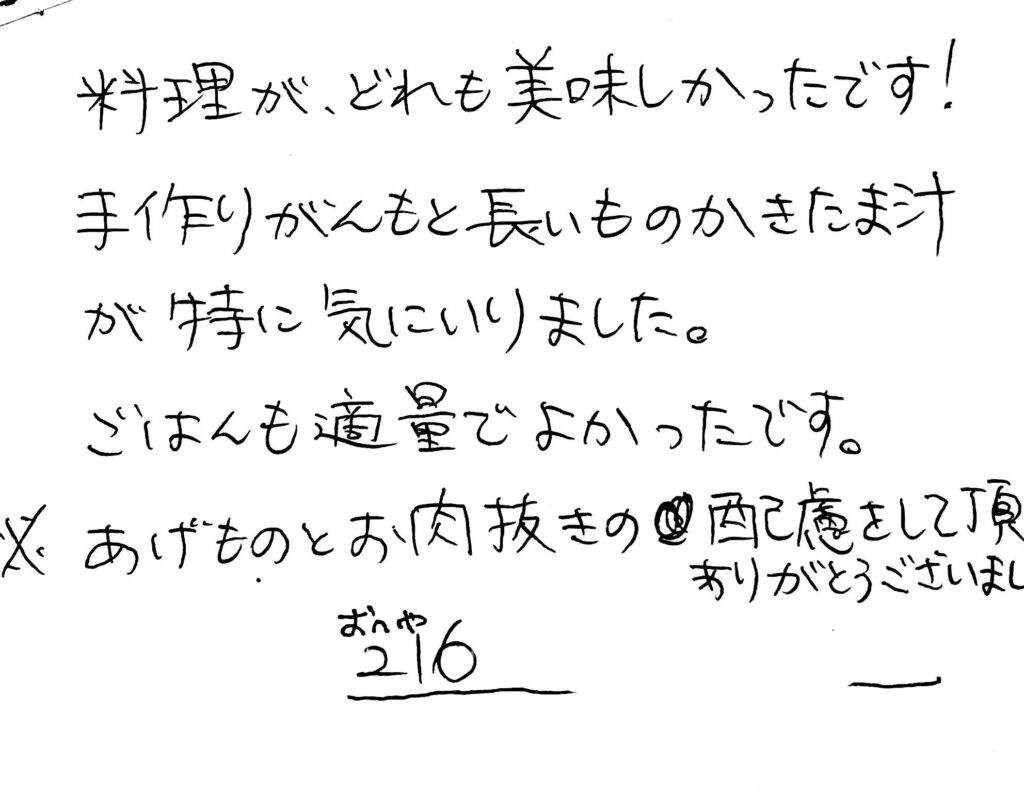 料理が、どれも美味しかったです!
手作りがんもと長いものかきたま汁
が特に気にいりました。
ごはんも適量でよかったです。
※ あげものとお肉抜きの配慮をして頂
ありがとうございまし
おへや
216